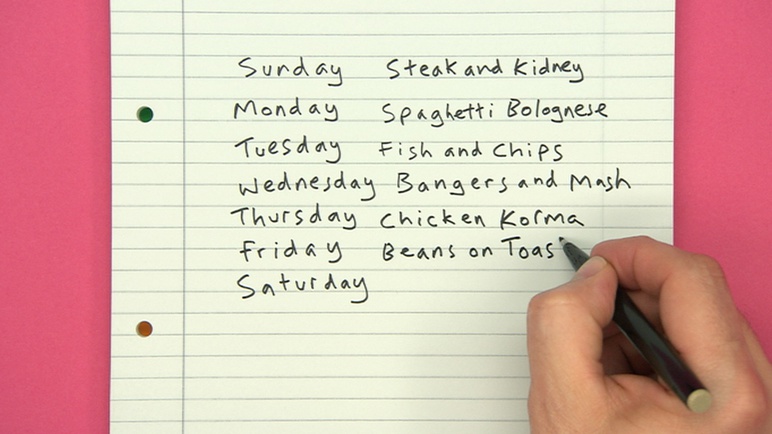 Sunday Steak and Kidney
Monday Spaghetti Bolognese
Tuesday Fish and Chips
Wednesday Bangers and Mash
Thursday Chicken Korma
Friday Beans on Toas
Saturday